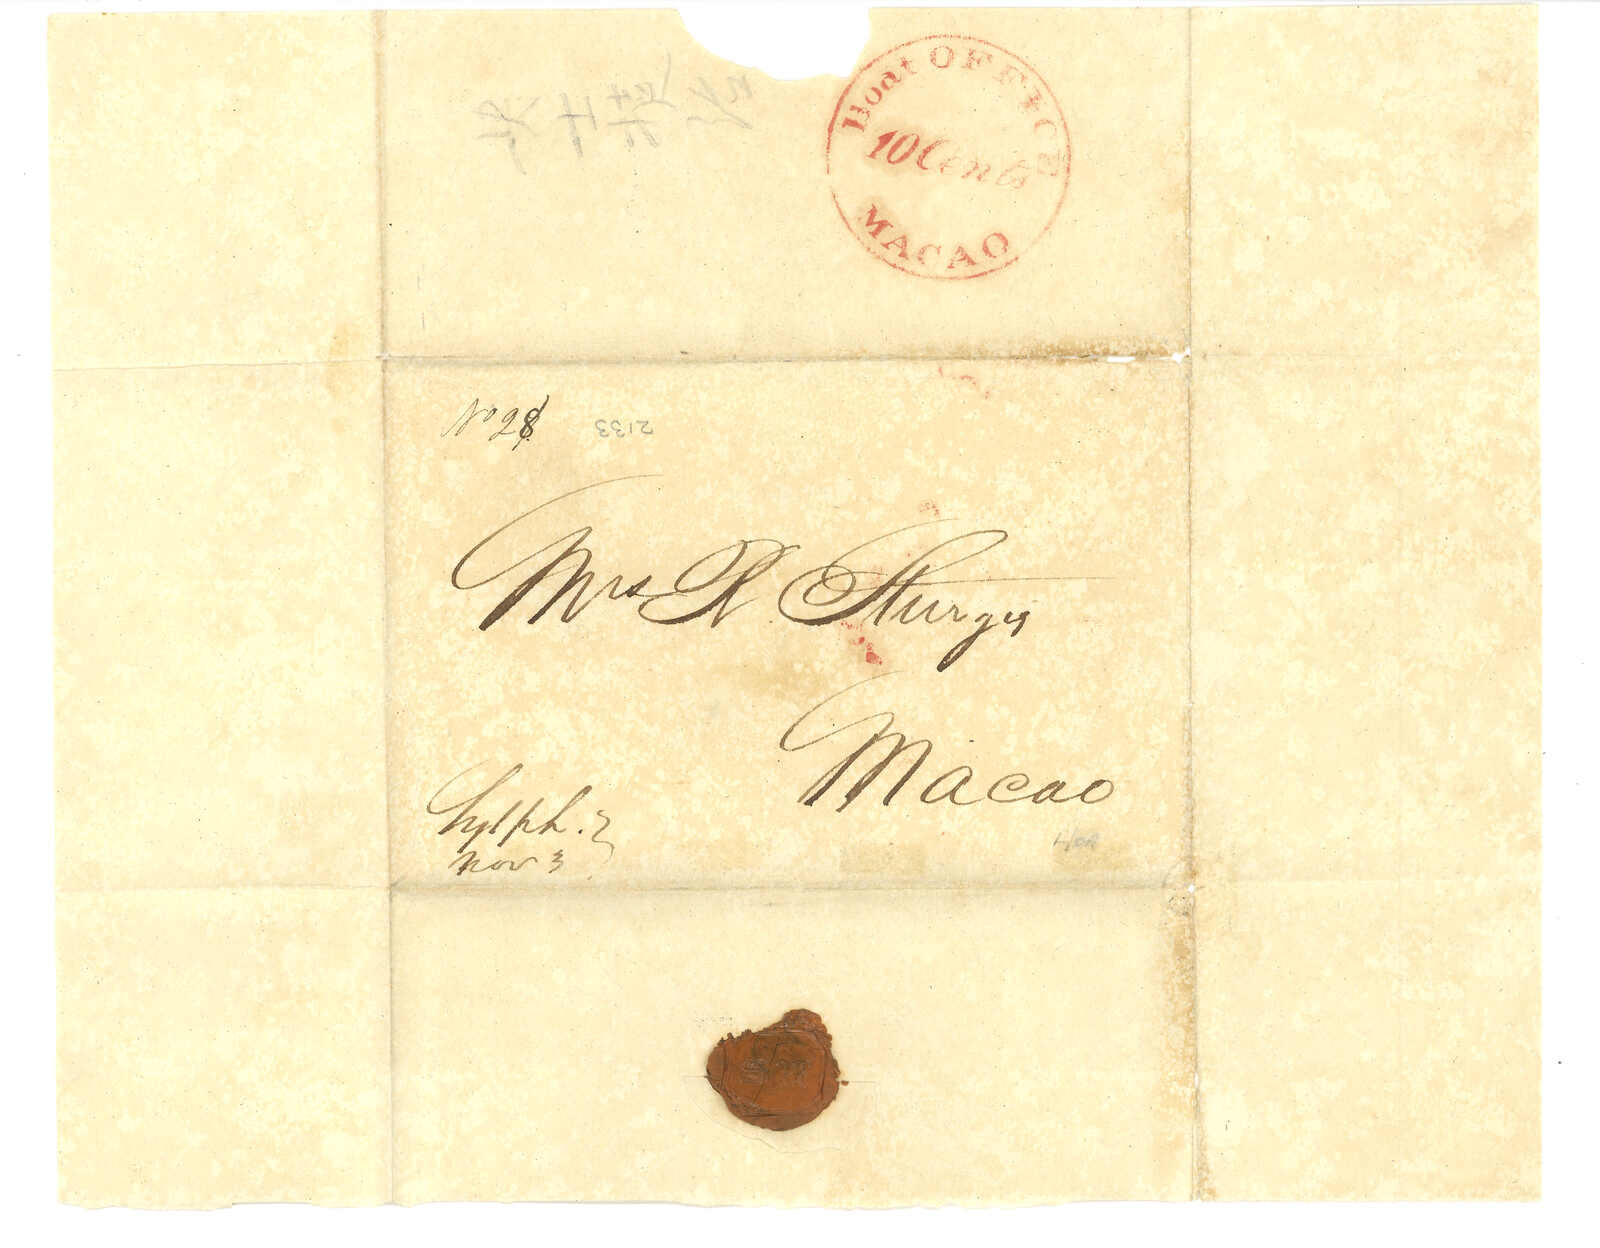 Boat OFFICE
10 Cents
MACAO
No 28
2133
Mrs R Sturgis
Macao
Sylph.
Nov 3